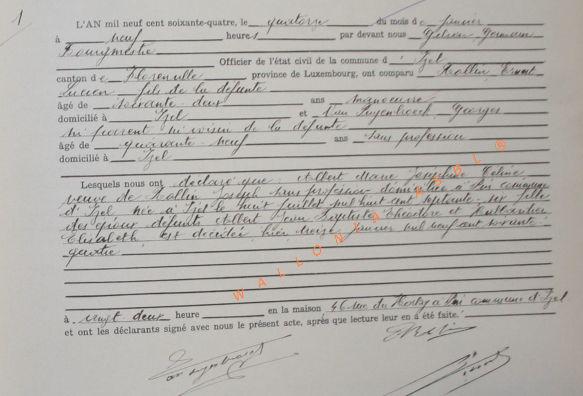 1
L'AN mil neuf cent soixante-quatre, le quatorze du mois de janvier
à neuf heures par devant nous Germain
Bourgmestre Officier de l'état civil de la commune d' Izel
canton de Florenville province de Luxembourg, ont comparu Rollin, Ernest
Lucien fils de la défunte
âgé de soixante-deux ans manoeuvre
domicilié à Izel et Van Puyenbroeck, Georges
ni parent ni voisin de la défunte
âgé de quarante-neuf ans sans profession
domicilié à Izel
Lesquels nous ont déclaré que Albert Marie Joséphine Céline
veuve de Rollin Joseph sans profession domiciliée à commune
d'Izel née à Izel le huit juillet mil huit cent septante- fille
des époux défunts Albert Jean Baptiste Théodore et
Elisabeth, est décédée hier treize janvier mil neuf cent soixante
quatre
WALLONIA ASBL ©
à vingt deux heure en la maison, 46 rue du commune d'Izel
et ont les déclarants signé avec nous le présent acte, après que lecture leur en a été faite.